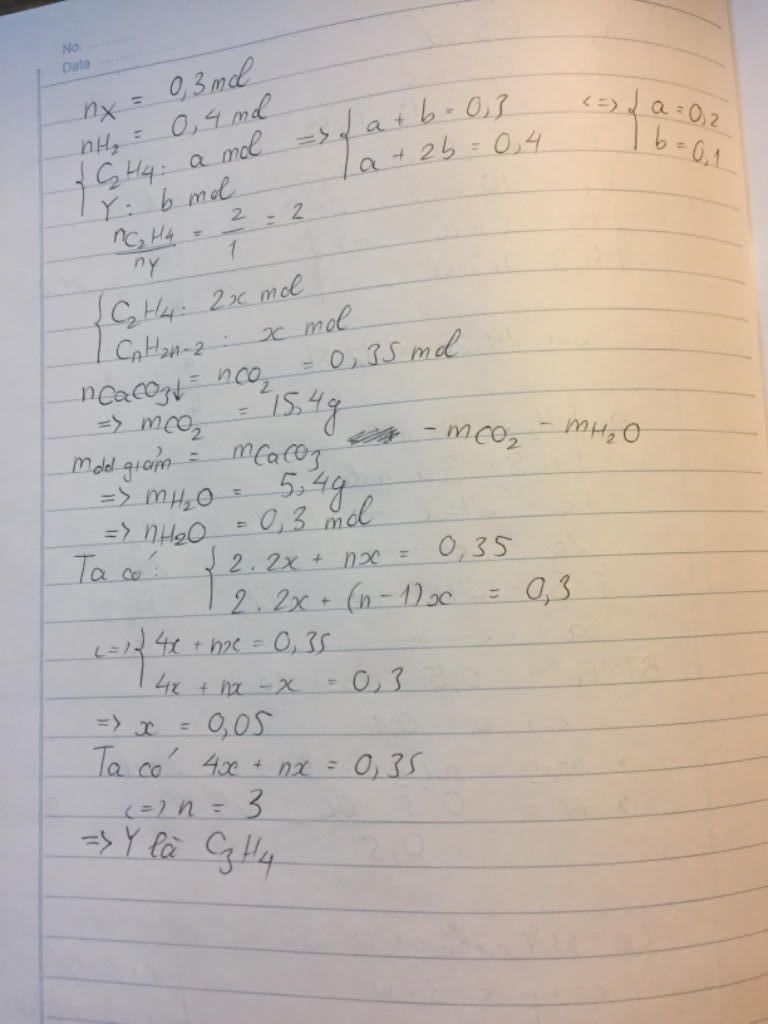 No. ............
Date ....................
nX = 0,3 mol
nH2 = 0,4 mol
{ C2H4: a mol => { a + b = 0,3 <=> { a = 0,2
Y: b mol a + 2b = 0,4 b = 0,1
nC2H4/nY = 2/1 = 2
{ C2H4: 2x mol
CnH2n-2 : x mol
nCaCO3↓ = nCO2 = 0,35 mol
=> mCO2 = 15,4g
mdd giảm = mCaCO3 - mCO2 - mH2O
=> mH2O = 5,4g
=> nH2O = 0,3 mol
Ta có: { 2.2x + nx = 0,35
2.2x + (n-1)x = 0,3
<=> { 4x + nx = 0,35
4x + nx - x = 0,3
=> x = 0,05
Ta có 4x + nx = 0,35
<=> n = 3
=> Y là C3H4